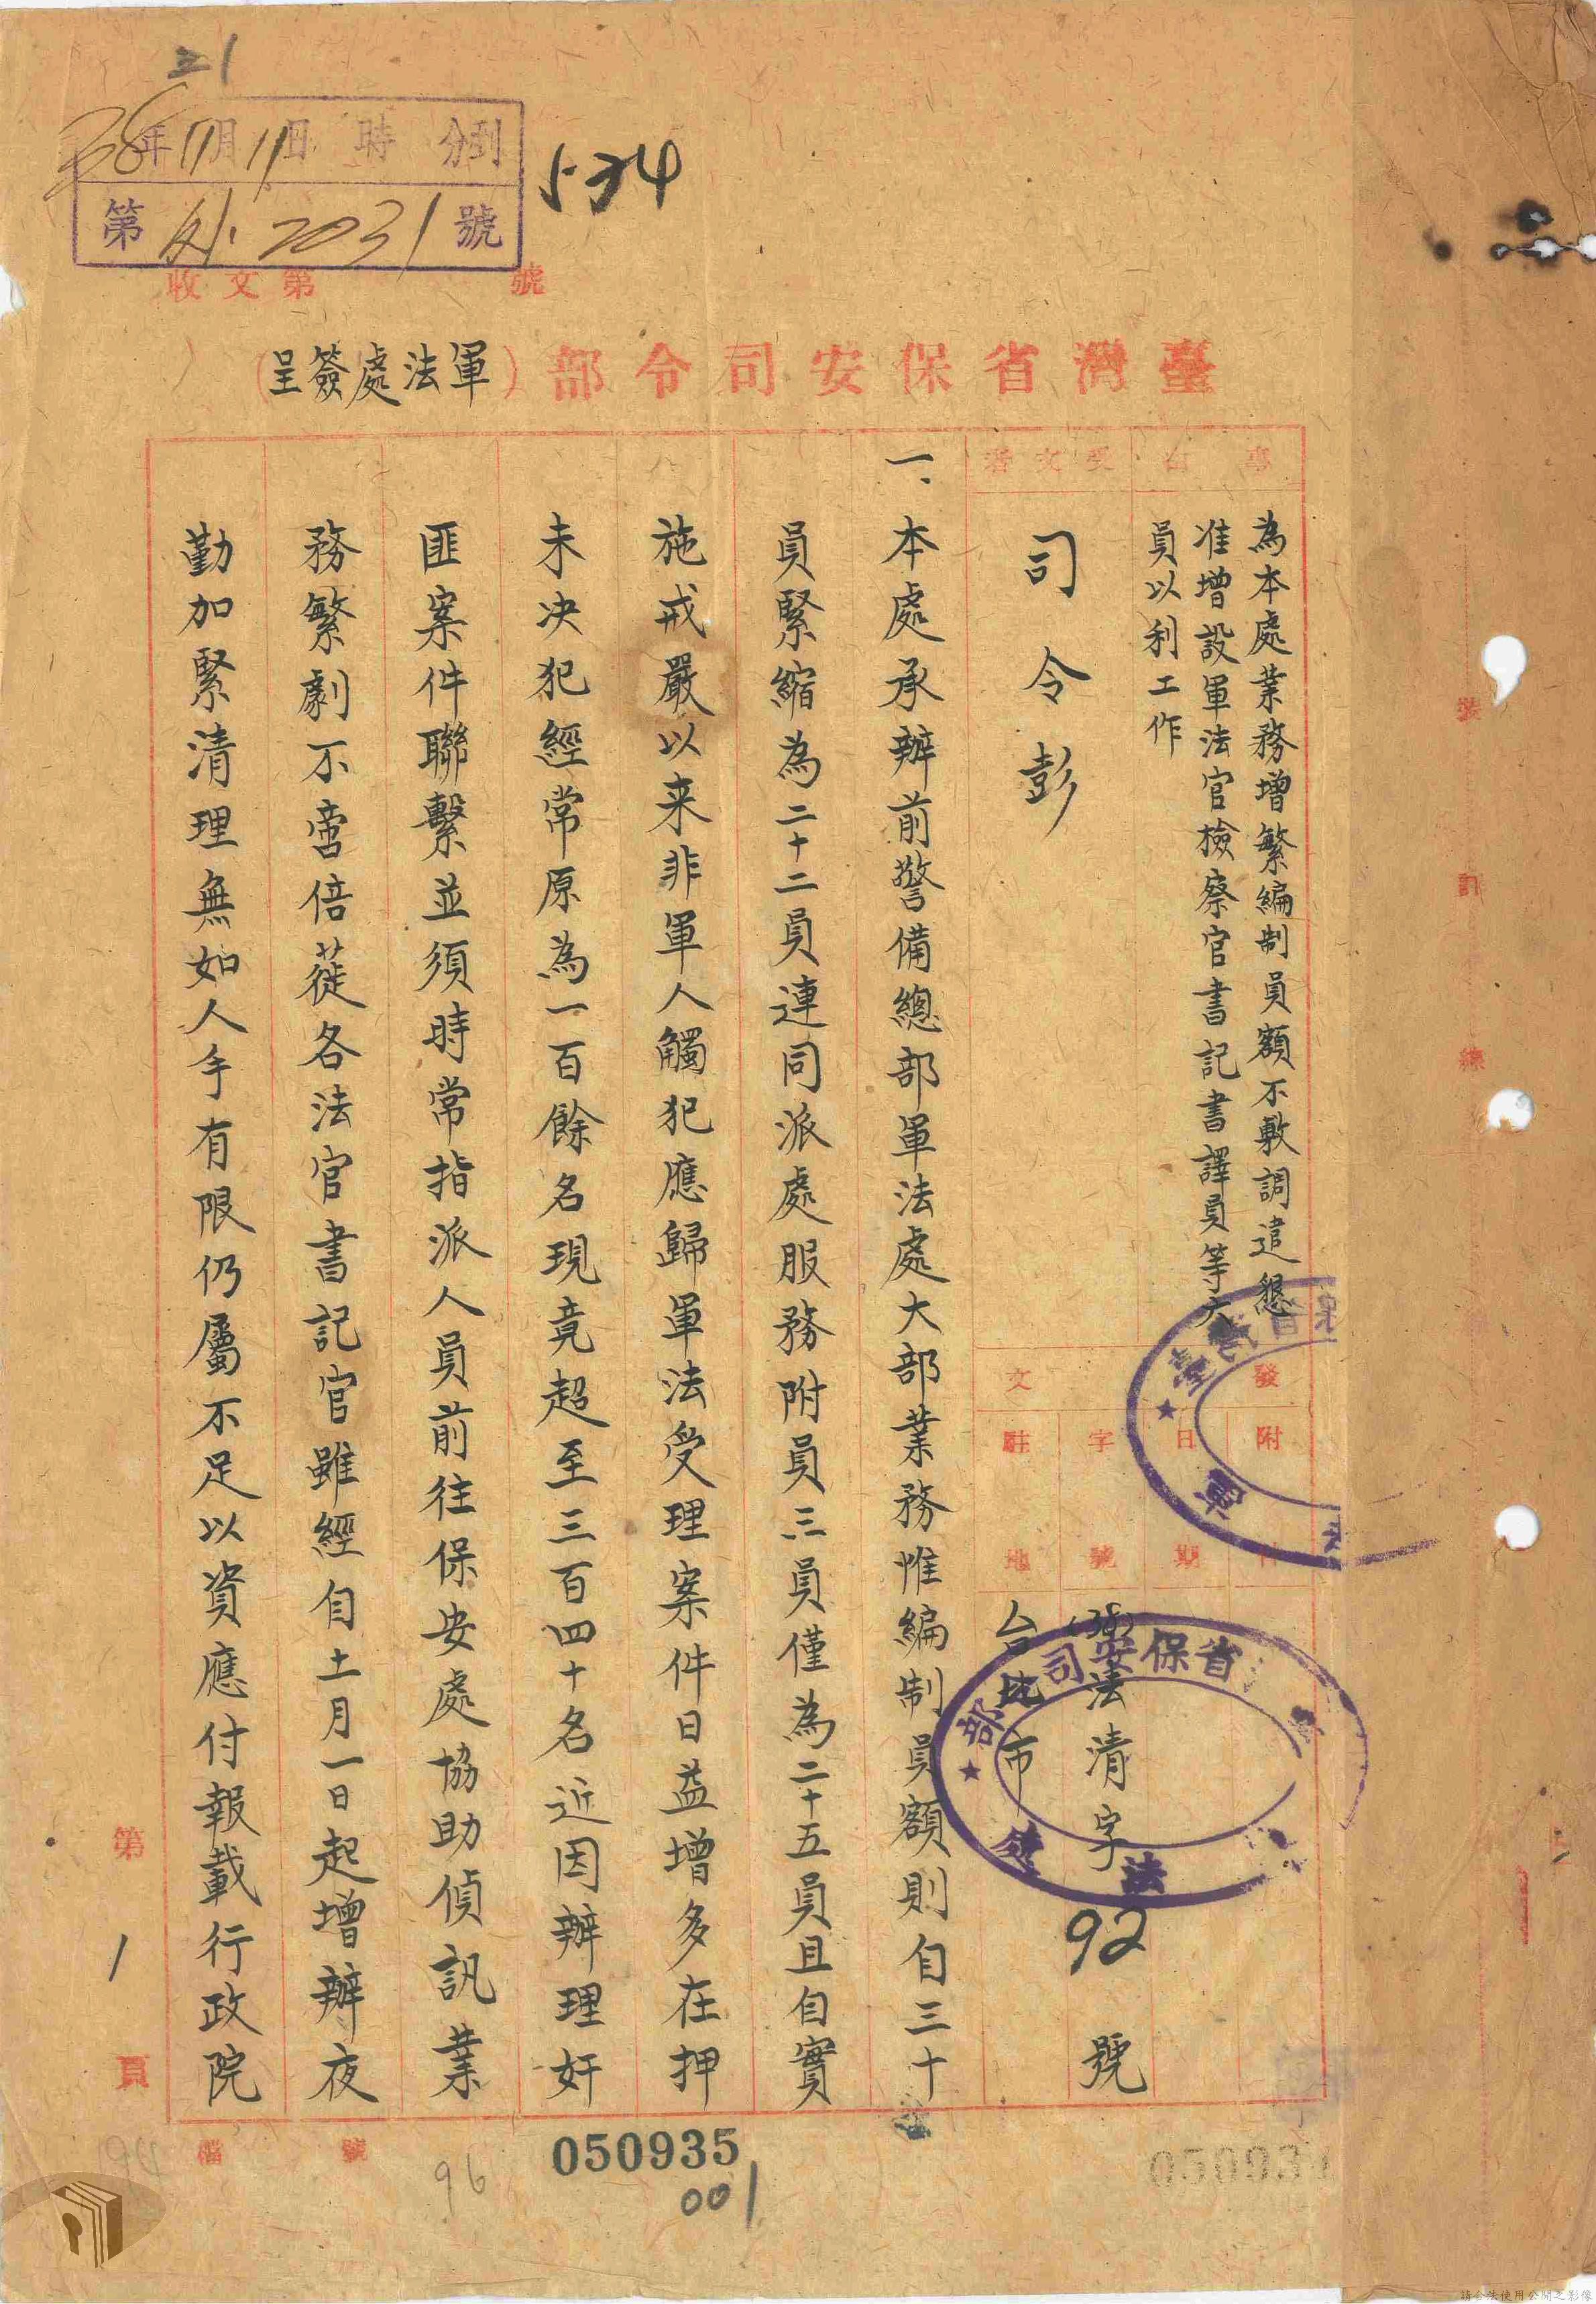 21
38年11月11日 時 分到
第 2031 號
534
收文第 號
臺灣省保安司令部（軍法處簽呈）
事由
為本處業務增繁編制員額不敷調遣懇
准增設軍法官檢察官書記書譯員等六
員以利工作
受文者
司令彭
發文
附件
日期
字號
(38)法清字92號
駐地
台北市
省保安司
部
法
一、本處承辦前警備總部軍法處大部業務惟編制員額則自三十
員緊縮為二十二員連同派處服務附員三員僅為二十五員且自實
施戒嚴以来非軍人觸犯應歸軍法受理案件日益增多在押
未決犯經常原為一百餘名現竟超至三百四十名近因辦理奸
匪案件聯繫並須時常指派人員前往保安處協助偵訊業
務繁劇不啻倍蓰各法官書記官雖經自十一月一日起增辦夜
勤加緊清理無如人手有限仍屬不足以資應付報載行政院
第1頁
裝
訂
線
檔號
94
96
050935
001
請合法使用公開之影像